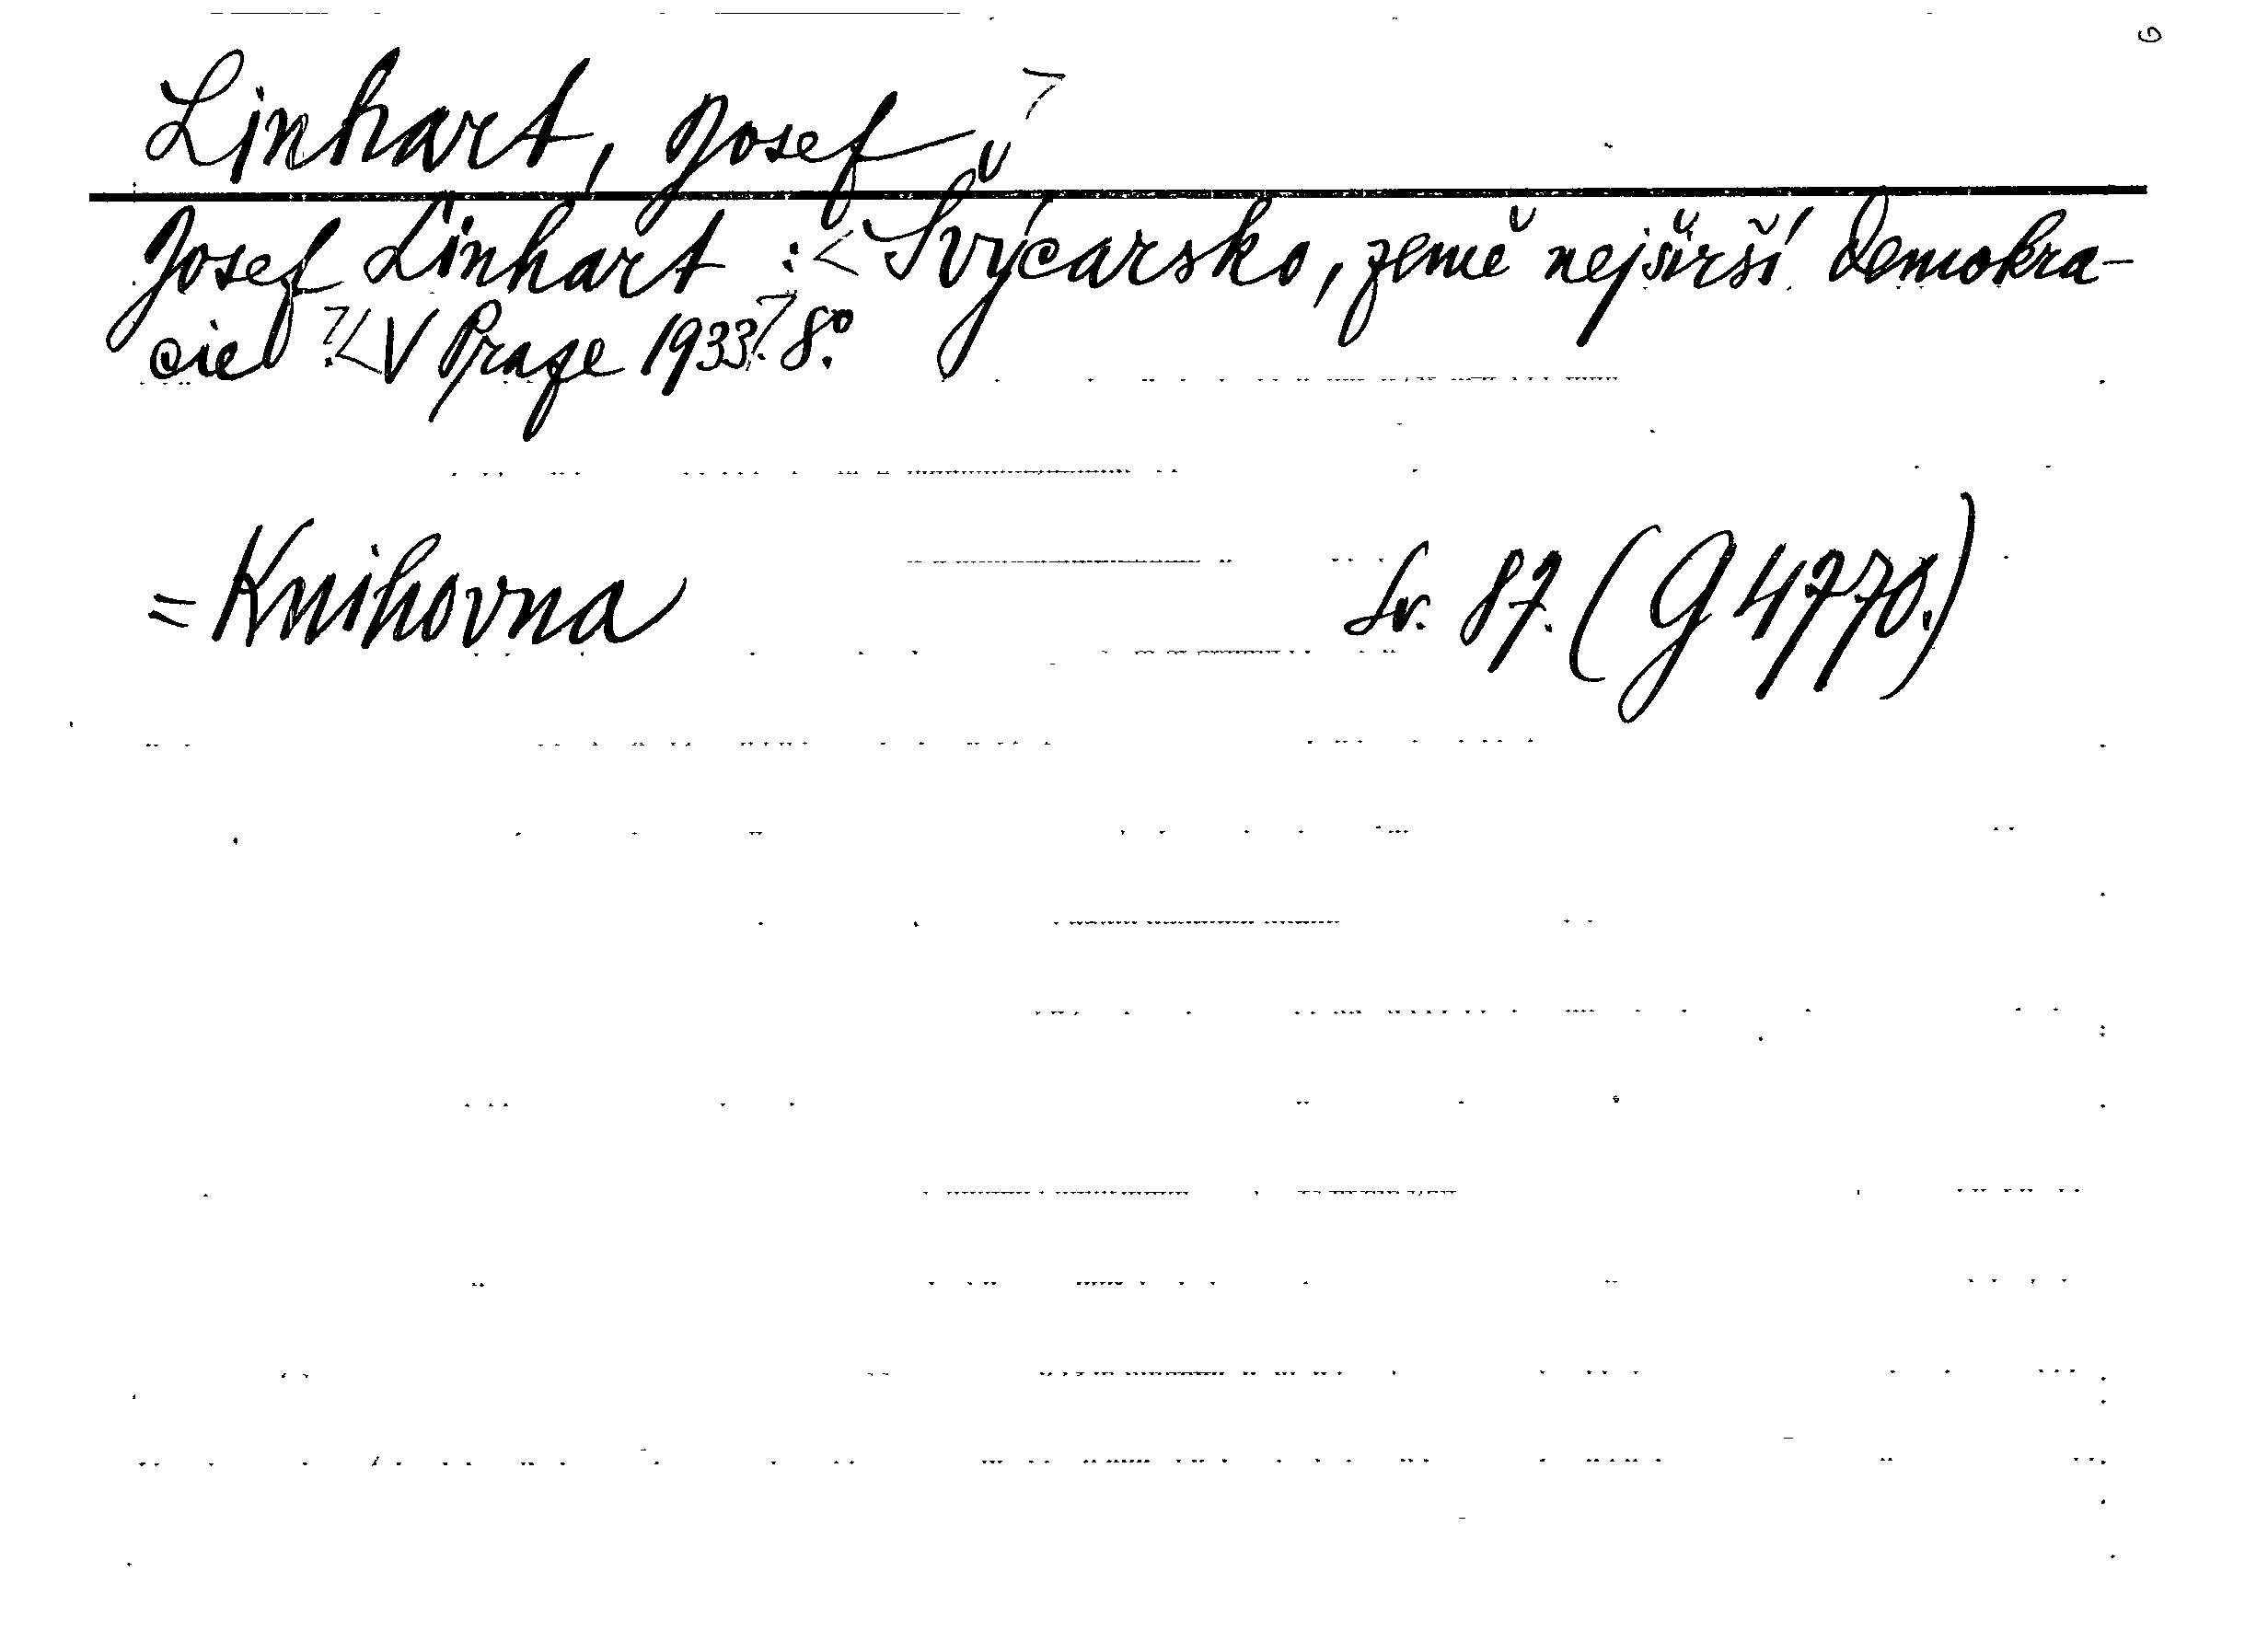 Linhart, Josef >
Josef Linhart : < Švýcarsko, země nejširší demokra-
cie >. < V Praze 1933 >. 8°.
= Knihovna Sv. 87. (G 4770.)